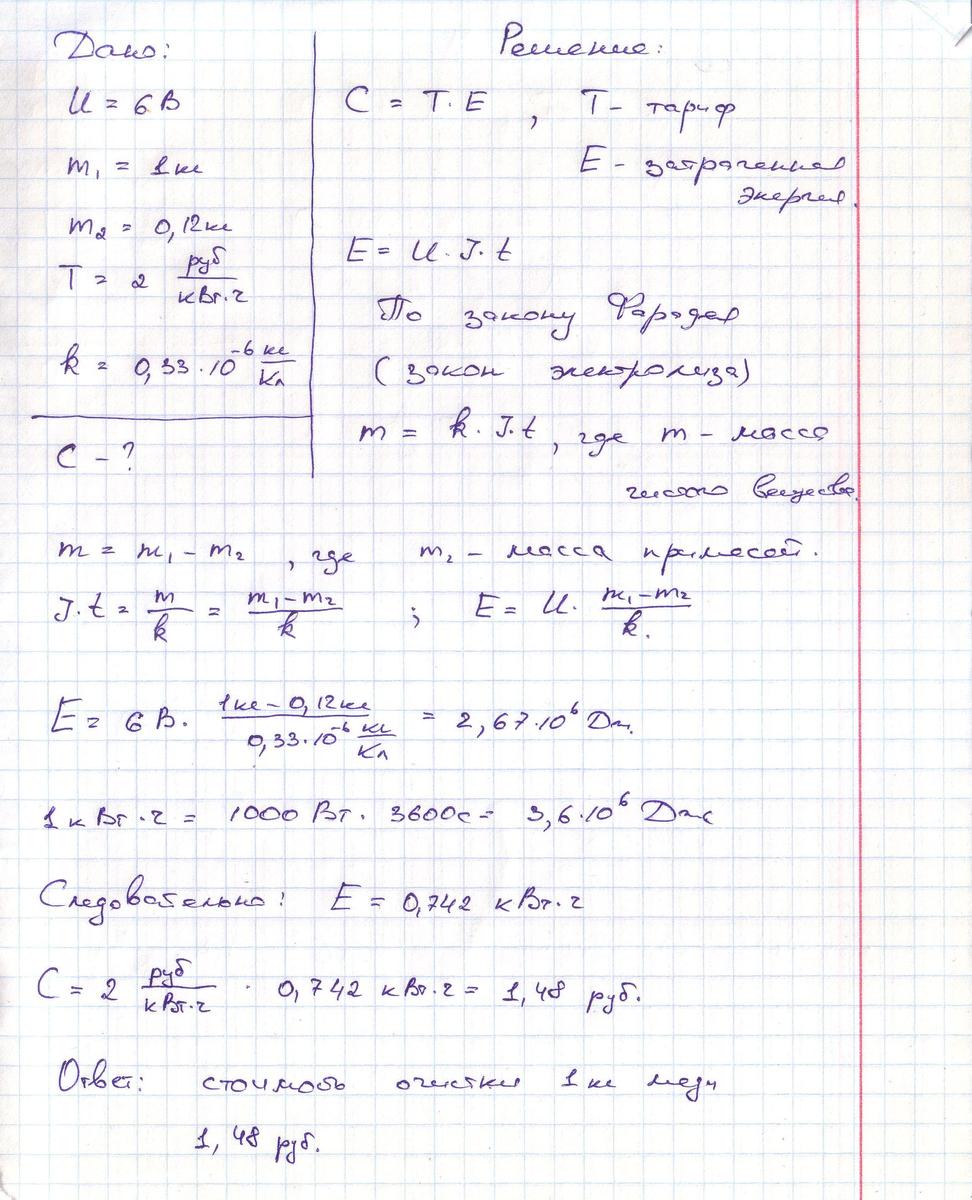 Дано:
U = 6 В
m₁ = 1 кг
m₂ = 0,12 кг
T = 2 руб/кВт·ч
k = 0,33·10⁻⁶ кг/Кл
C - ?
Решение:
C = T·E , T - тариф
E - затраченная
энергия.
E = U·J·t
По закону Фарадея
(закон электролиза)
m = k·J·t, где m - масса
чистого вещества.
m = m₁ - m₂ , где m₂ - масса примесей.
J·t = m/k = (m₁-m₂)/k ; E = U· (m₁-m₂)/k.
E = 6 В· (1кг-0,12кг)/(0,33·10⁻⁶ кг/Кл) = 2,67·10⁶ Дж.
1 кВт·ч = 1000 Вт· 3600с = 3,6·10⁶ Дж
Следовательно: E = 0,742 кВт·ч
C = 2 руб/кВт·ч · 0,742 кВт·ч = 1,48 руб.
Ответ: стоимость очистки 1 кг меди
1,48 руб.